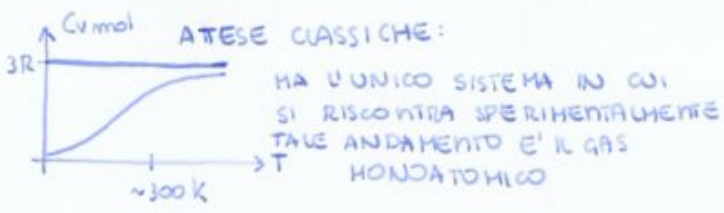 Cv mol
ATTESE CLASSICHE:
3R
MA L'UNICO SISTEMA IN CUI
SI RISCONTRA SPERIMENTALMENTE
TALE ANDAMENTO E' IL GAS
MONOATOMICO
T
~300 K